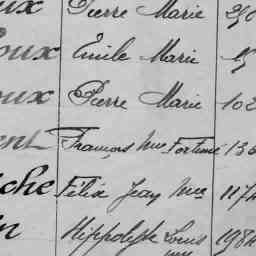 ux Pierre Marie
oux Emile Marie
oux Pierre Marie 102
ent François Mie Fortuné 136
che Félix Jean Mie 1174
in Hippolyte Louis 1984